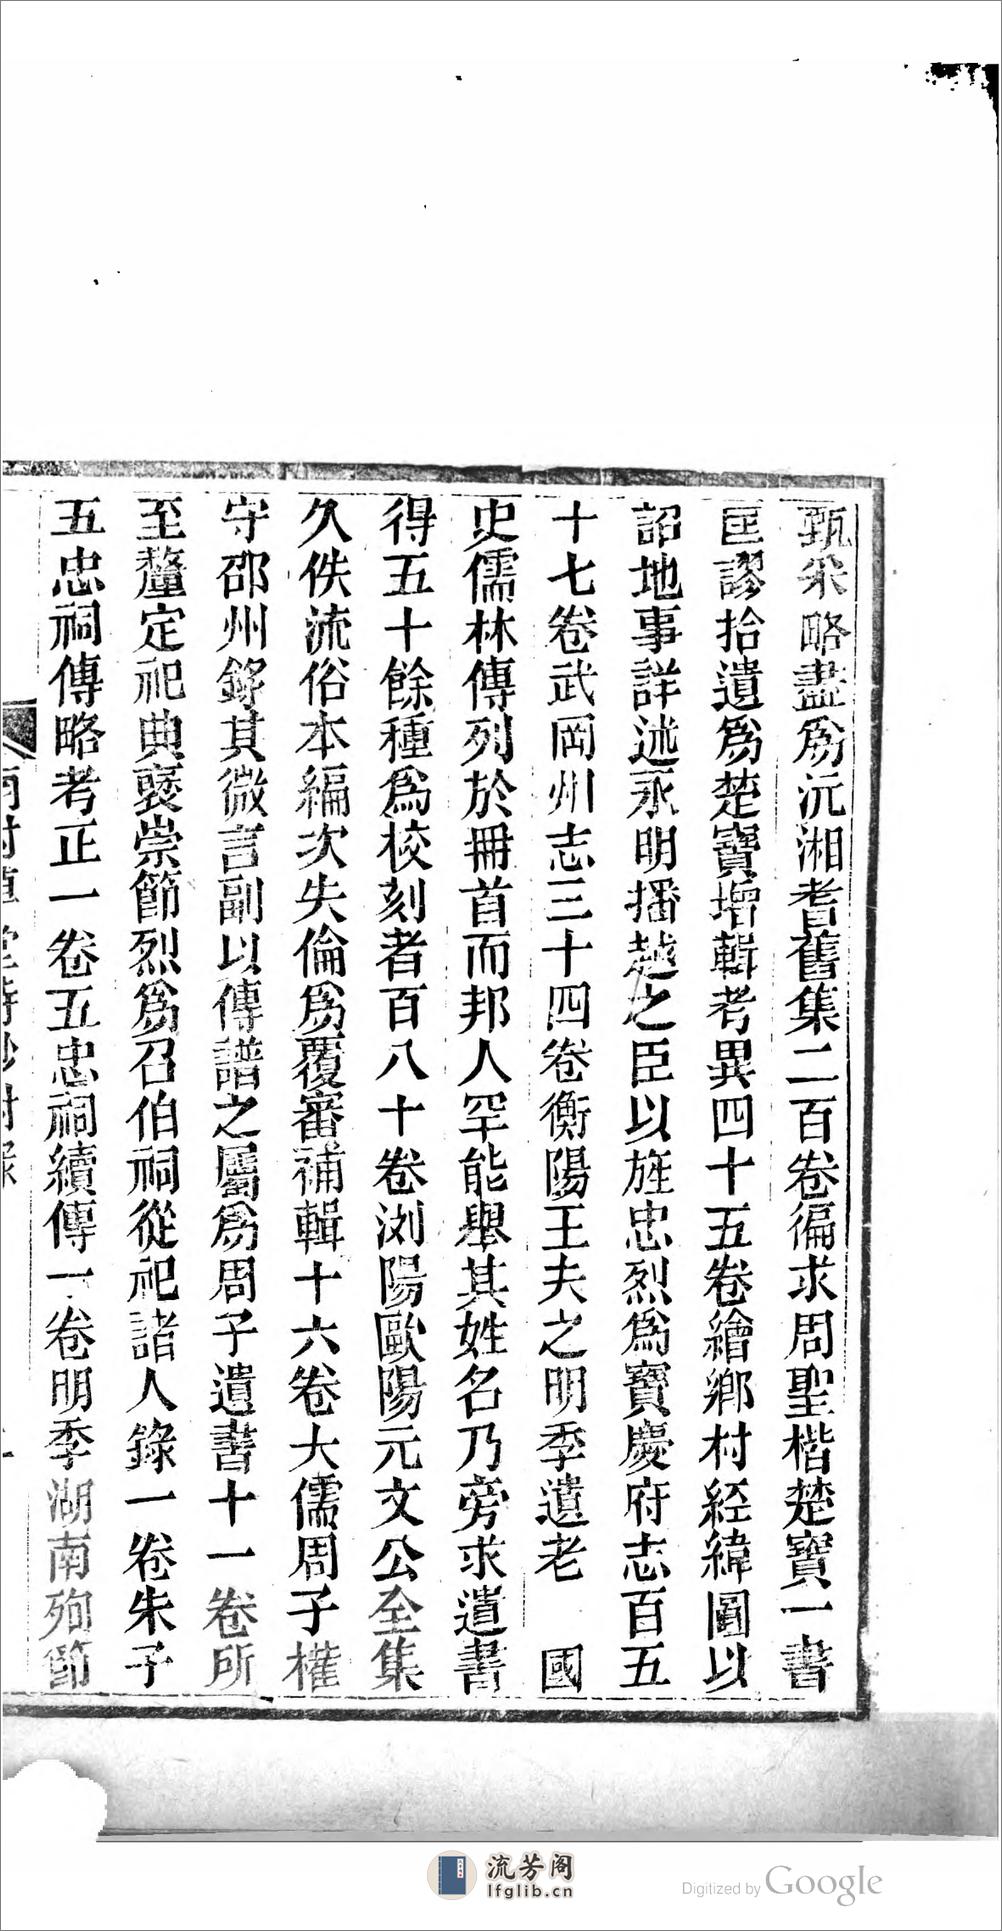 甄采略盡爲沅湘耆舊集二百卷徧求周聖楷楚寶一書
匡謬拾遺爲楚寶增輯考異四十五卷繪鄉村經緯圖以
詔地事詳述永明播越之臣以旌忠烈爲寶慶府志百五
十七卷武岡州志三十四卷衡陽王夫之明季遺老 國
史儒林傳列於冊首而邦人罕能舉其姓名乃旁求遺書
得五十餘種爲校刻者百八十卷浏陽歐陽元文公全集
久佚流俗本編次失倫爲覆審補輯十六卷大儒周子權
守邵州錄其微言副以傳譜之屬爲周子遺書十一卷所
至釐定祀典褎崇節烈爲召伯祠從祀諸人錄一卷朱子
五忠祠傳略考正一卷五忠祠續傳一卷明季湖南殉節
流芳阁
lfglib.cn
Digitized by Google